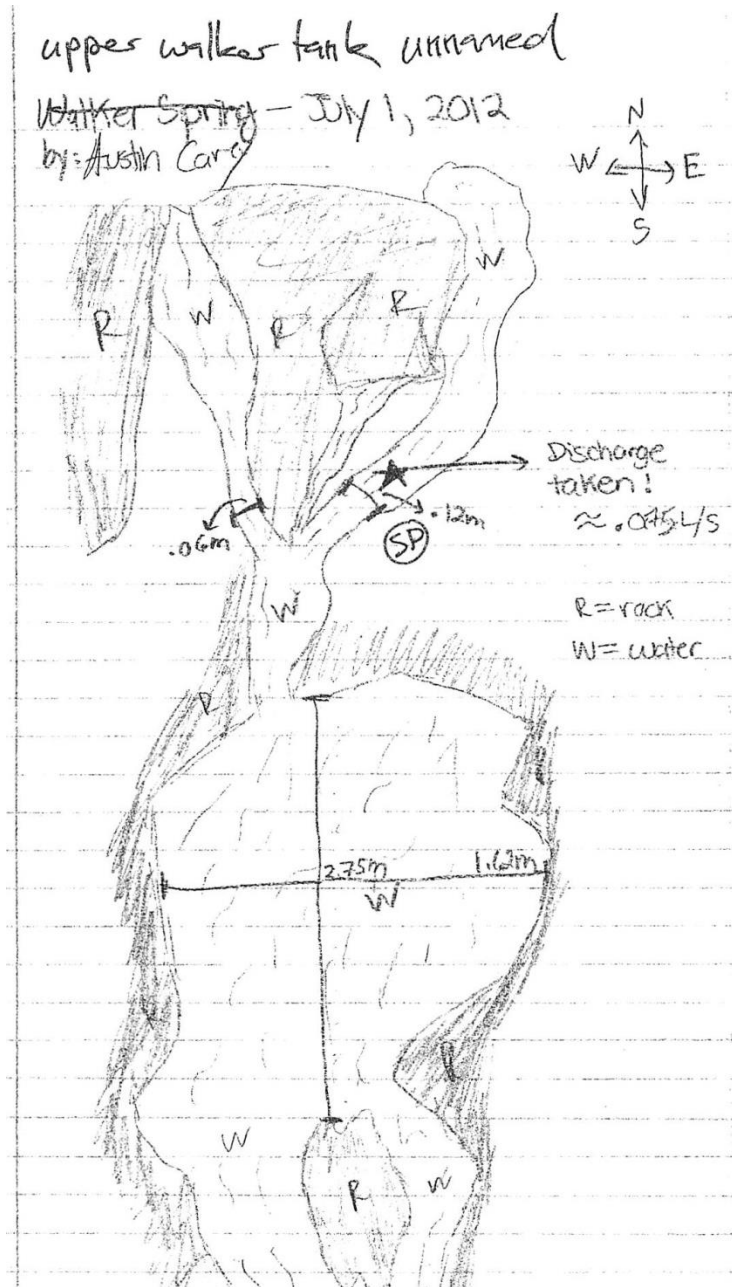 upper walker tank unnamed
Walker Spring - July 1, 2012
by: Austin
N
W E
S
W
R
W
R
R
Discharge
taken!
.06m
.12m
SP
W
R = rock
W = water
R
2.75m
1.62m
W
W
R
W